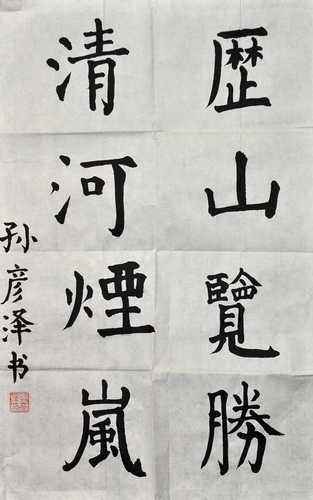 歷山覽勝
清河煙嵐
孙彦泽书